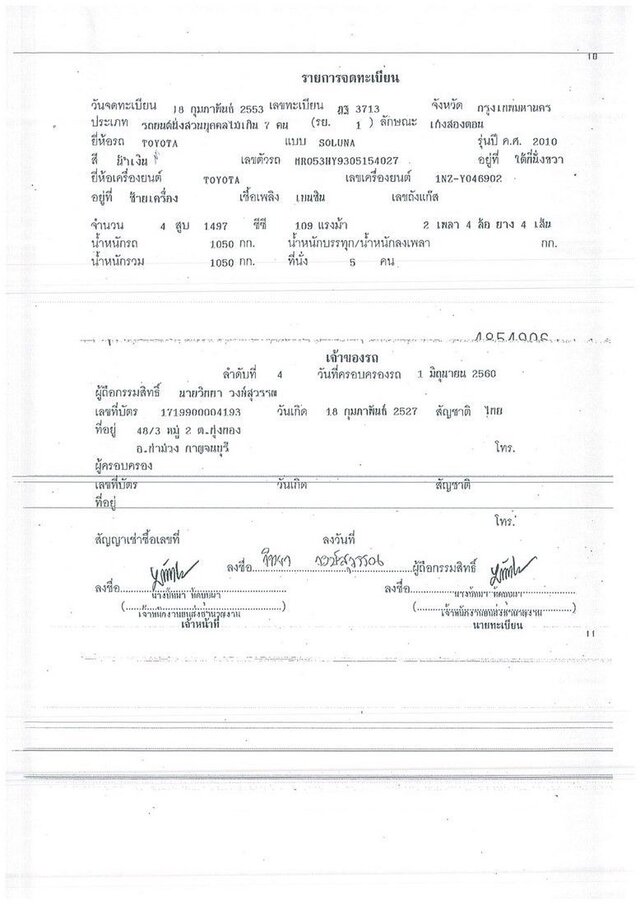 10
รายการจดทะเบียน
วันจดทะเบียน 18 กุมภาพันธ์ 2553 เลขทะเบียน 3713 จังหวัด กรุงเทพมหานคร
ประเภท รถยนต์นั่งส่วนบุคคลไม่เกิน 7 คน (รย. 1 ) ลักษณะ เก๋งสองตอน
ยี่ห้อรถ TOYOTA แบบ SOLUNA รุ่นปี ค.ศ. 2010
สี น้ำเงิน เลขตัวรถ MR053HY9305154027 อยู่ที่ ใต้ที่นั่งขวา
ยี่ห้อเครื่องยนต์ TOYOTA เลขเครื่องยนต์ 1NZ-Y046902
อยู่ที่ ซ้ายเครื่อง เชื้อเพลิง เบนซิน เลขถังแก๊ส
จำนวน 4 สูบ 1497 ซีซี 109 แรงม้า 2 เพลา 4 ล้อ ยาง 4 เส้น
น้ำหนักรถ 1050 กก. น้ำหนักบรรทุก/น้ำหนักลงเพลา กก.
น้ำหนักรวม 1050 กก. ที่นั่ง 5 คน
4854906
เจ้าของรถ
ลำดับที่ 4 วันที่ครอบครองรถ 1 มิถุนายน 2560
ผู้ถือกรรมสิทธิ์ นายวิทยา วงษ์สุวรรณ
เลขที่บัตร 1719900004193 วันเกิด 18 กุมภาพันธ์ 2527 สัญชาติ ไทย
ที่อยู่ 48/3 หมู่ 2 ต.ทุ่งทอง
อ.ท่าม่วง กาญจนบุรี โทร.
ผู้ครอบครอง
เลขที่บัตร วันเกิด สัญชาติ
ที่อยู่
โทร.
สัญญาเช่าซื้อเลขที่ ลงวันที่
ลงชื่อ วิทยา วงษ์สุวรรณ ผู้ถือกรรมสิทธิ์
ลงชื่อ ลงชื่อ
เจ้าพนักงานขนส่งชำนาญงาน เจ้าพนักงานขนส่งชำนาญงาน
เจ้าหน้าที่ นายทะเบียน
11